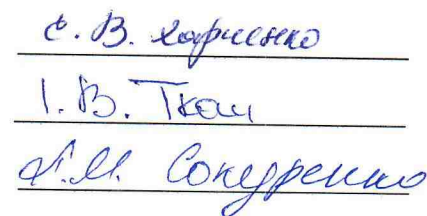 Є. В. Харченко
І. В. Ткач
Л.М. Сокуренко